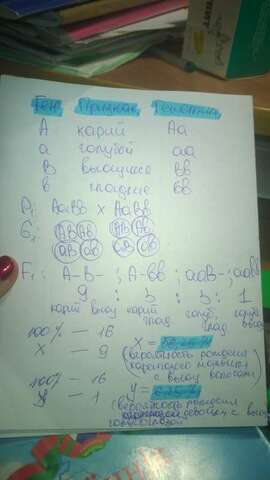 Ген Признак Генотип
А карий Аа
а голубой аа
В вьющиеся Вв
в гладкие вв
P: АаВв х АаВв
G: АВ Ав АВ Ав
аВ ав аВ ав
F₁: А-В- ; А-вв ; ааВ- ; аавв
9 : 3 : 3 : 1
карий вьющ карий голуб,
глад. вьющ глад.
100% — 16
х — 9
х = 56.25%
(вероятность рождения
кареглазого мальчика
с вьющ волосами)
100% — 16
у — 1
у = 6.25%
(вероятность рождения
девочки с